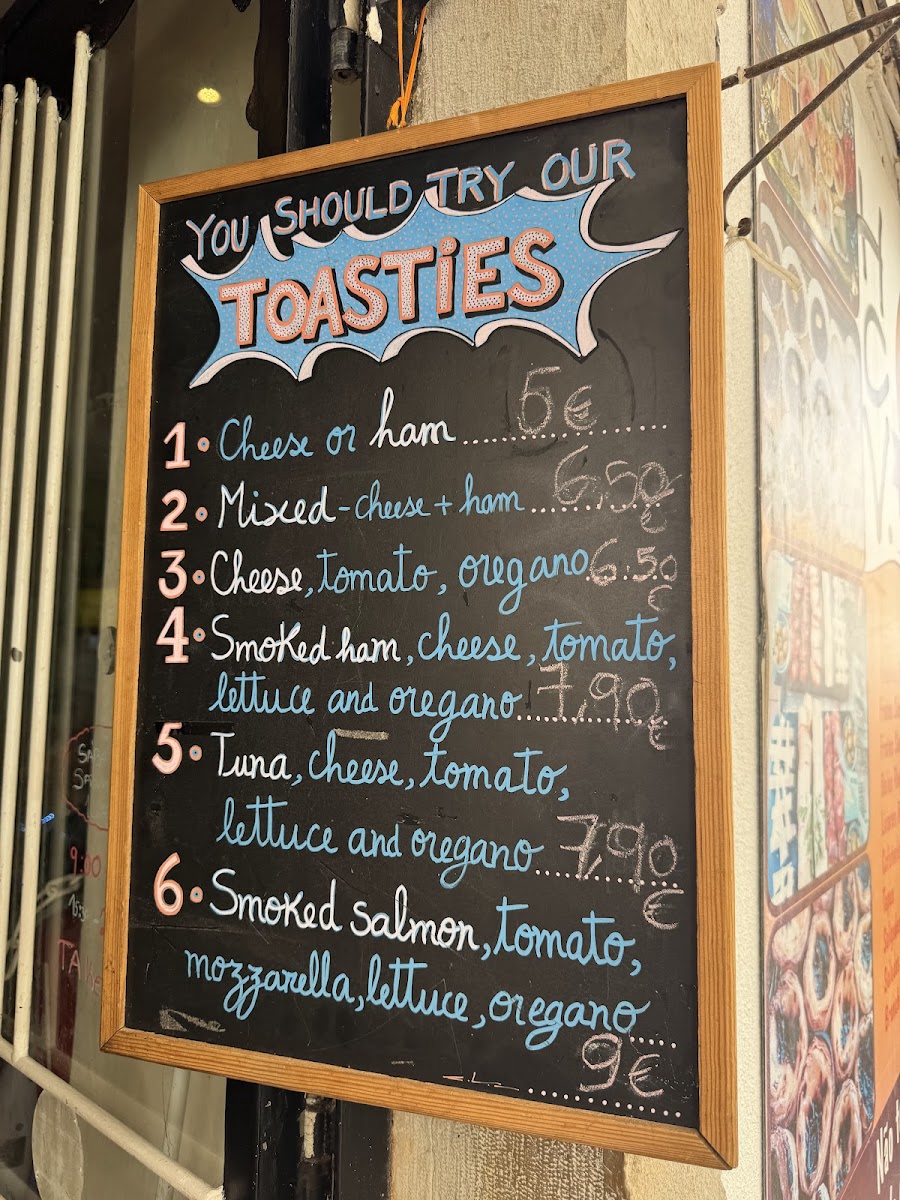 YOU SHOULD TRY OUR
TOASTiES
1. Cheese or ham.......5€
2. Mixed - cheese + ham....6,50
€
3. Cheese, tomato, oregano.6.50
€
4. Smoked ham, cheese, tomato,
lettuce and oregano..7,90
€
5. Tuna, cheese, tomato,
lettuce and oregano..7,90
€
6. Smoked salmon, tomato,
mozzarella, lettuce, oregano....
9€
9:00
Não